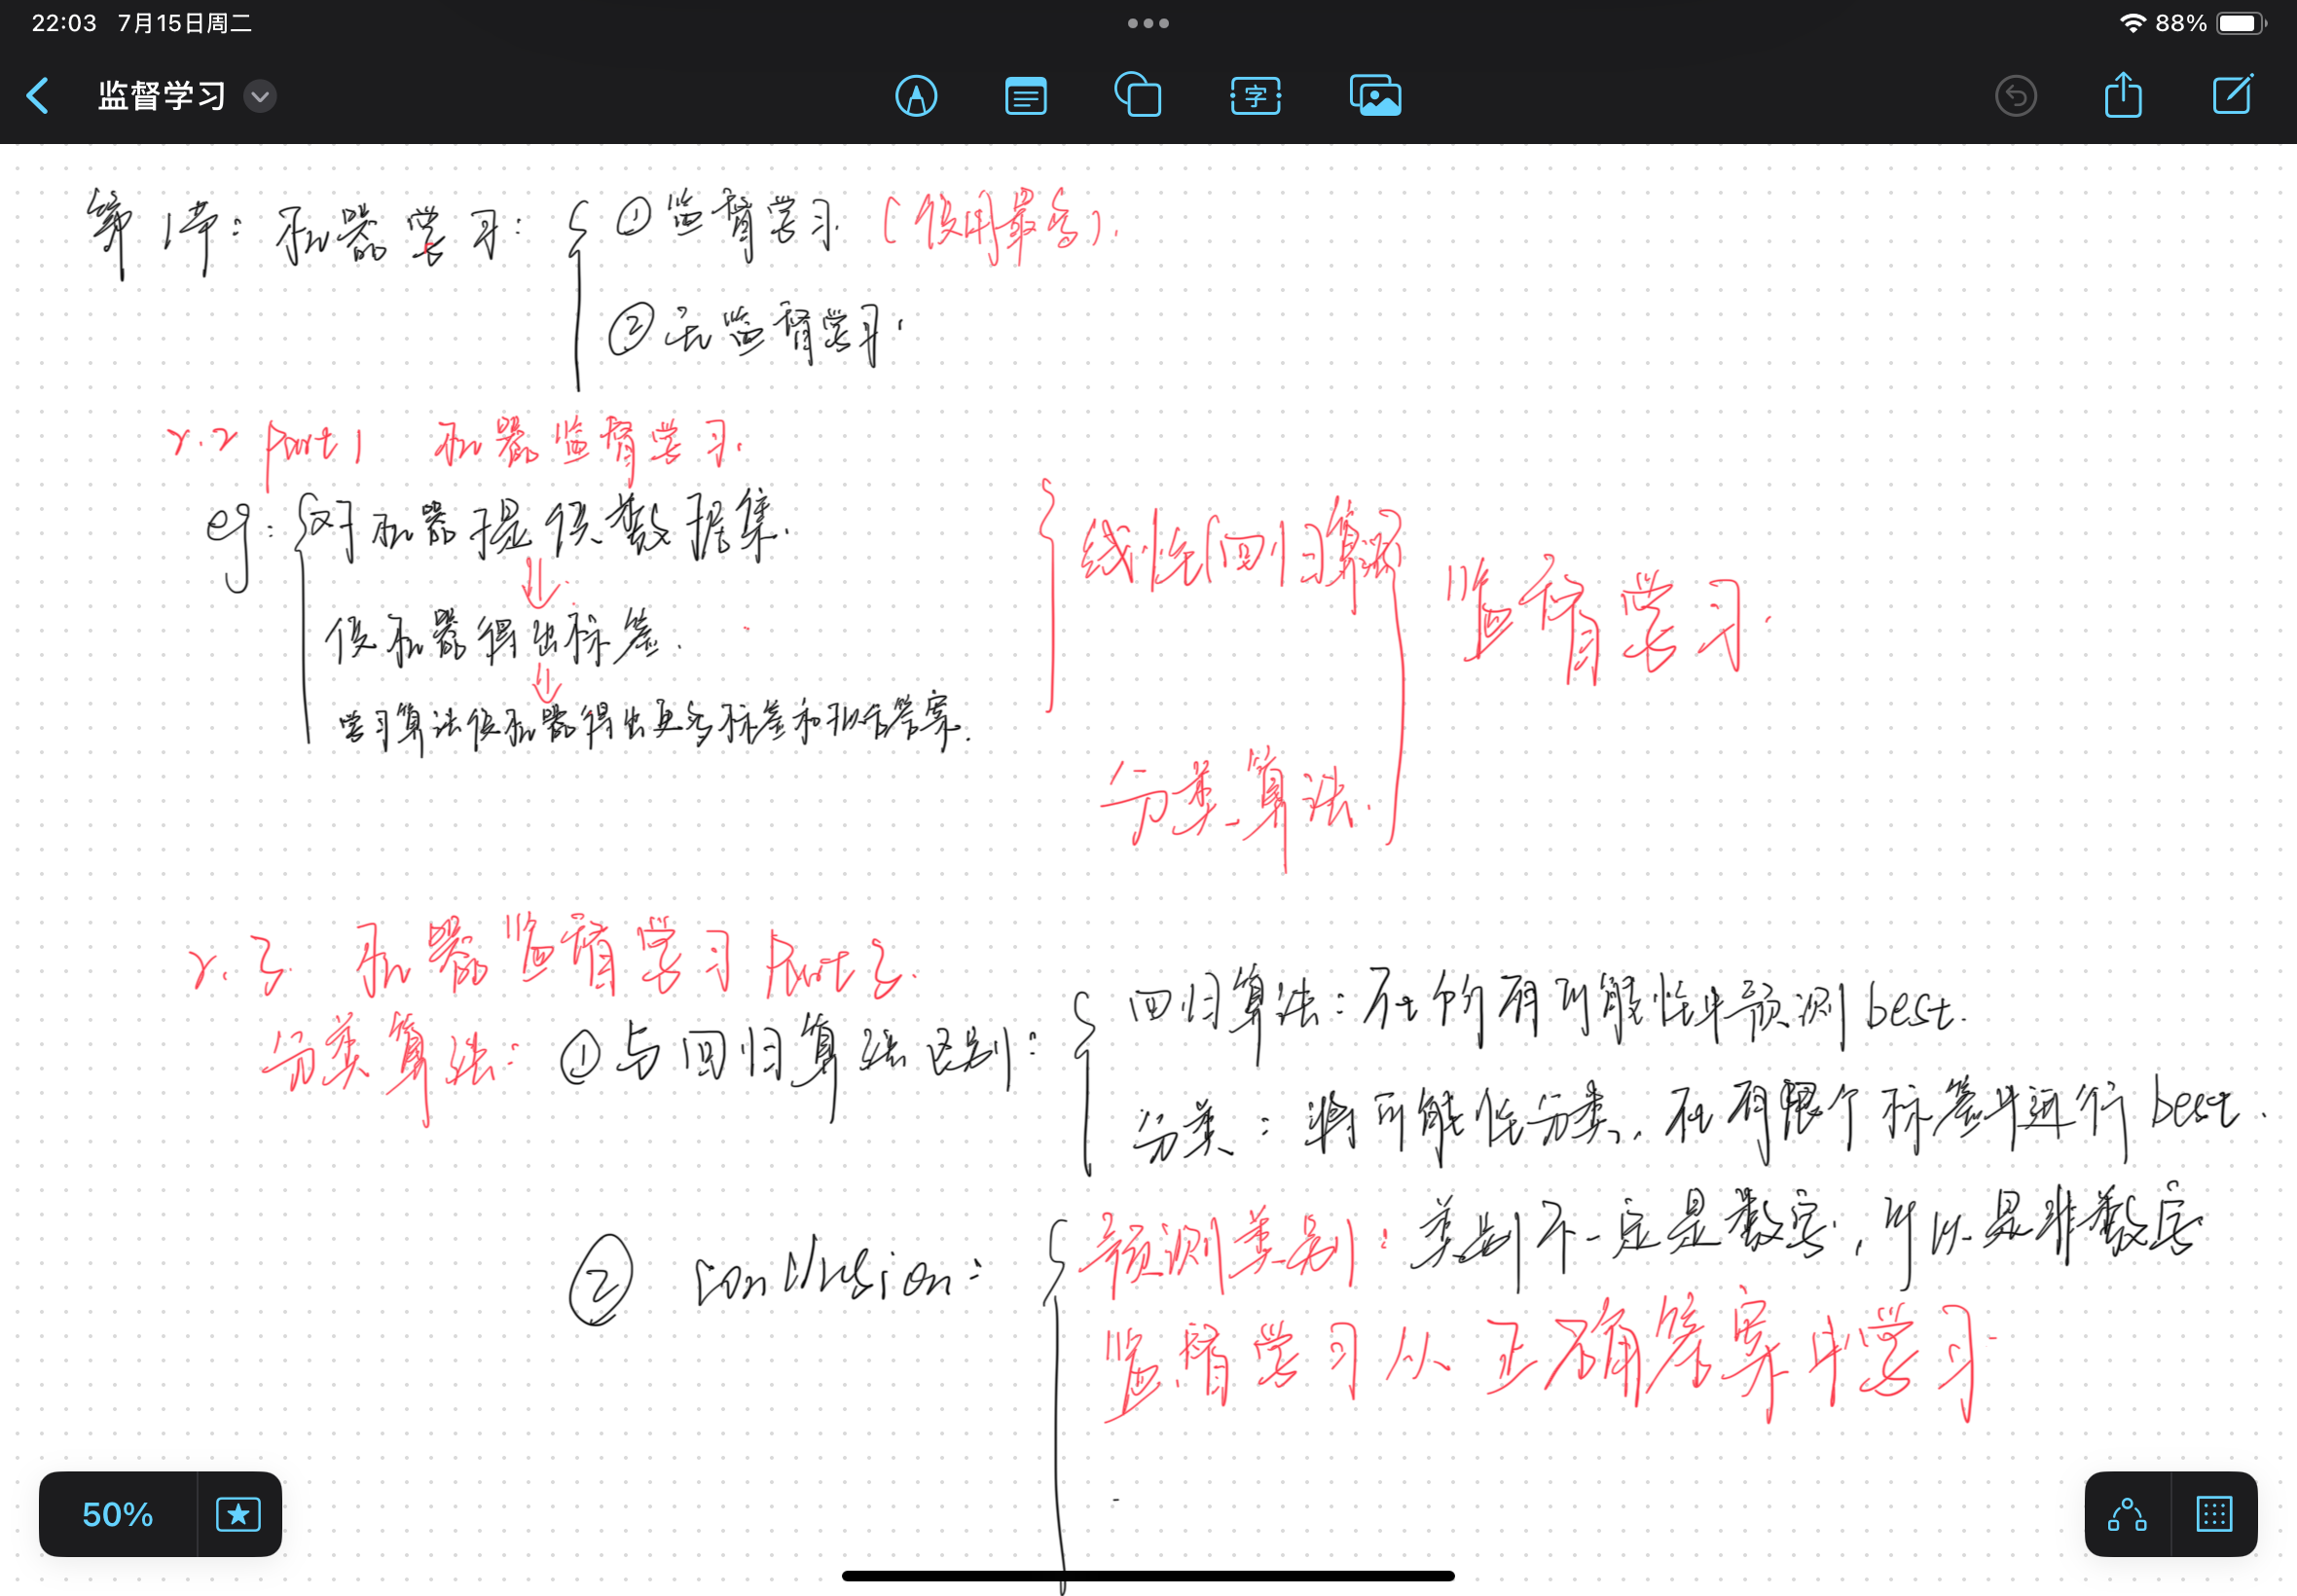 22:03 7月15日周二
88%
监督学习
字
第1节: 机器学习:
①监督学习 (使用最多).
②无监督学习.
2.2 Part 1 机器监督学习.
eg: 对机器提供数据集.
使机器得出标签.
学习算法使机器得出更多标签和 答案.
线性回归算法
分类算法.
监督学习.
2.3 机器监督学习Part 2.
分类算法: ①与回归算法区别:
回归算法: 在 所有可能性中预测best.
分类: 将可能性分类, 在有限个标签中进行best.
② conclusion:
预测类别: 类别不一定是数字, 可以是非数字
监督学习从正确答案中学习
50%